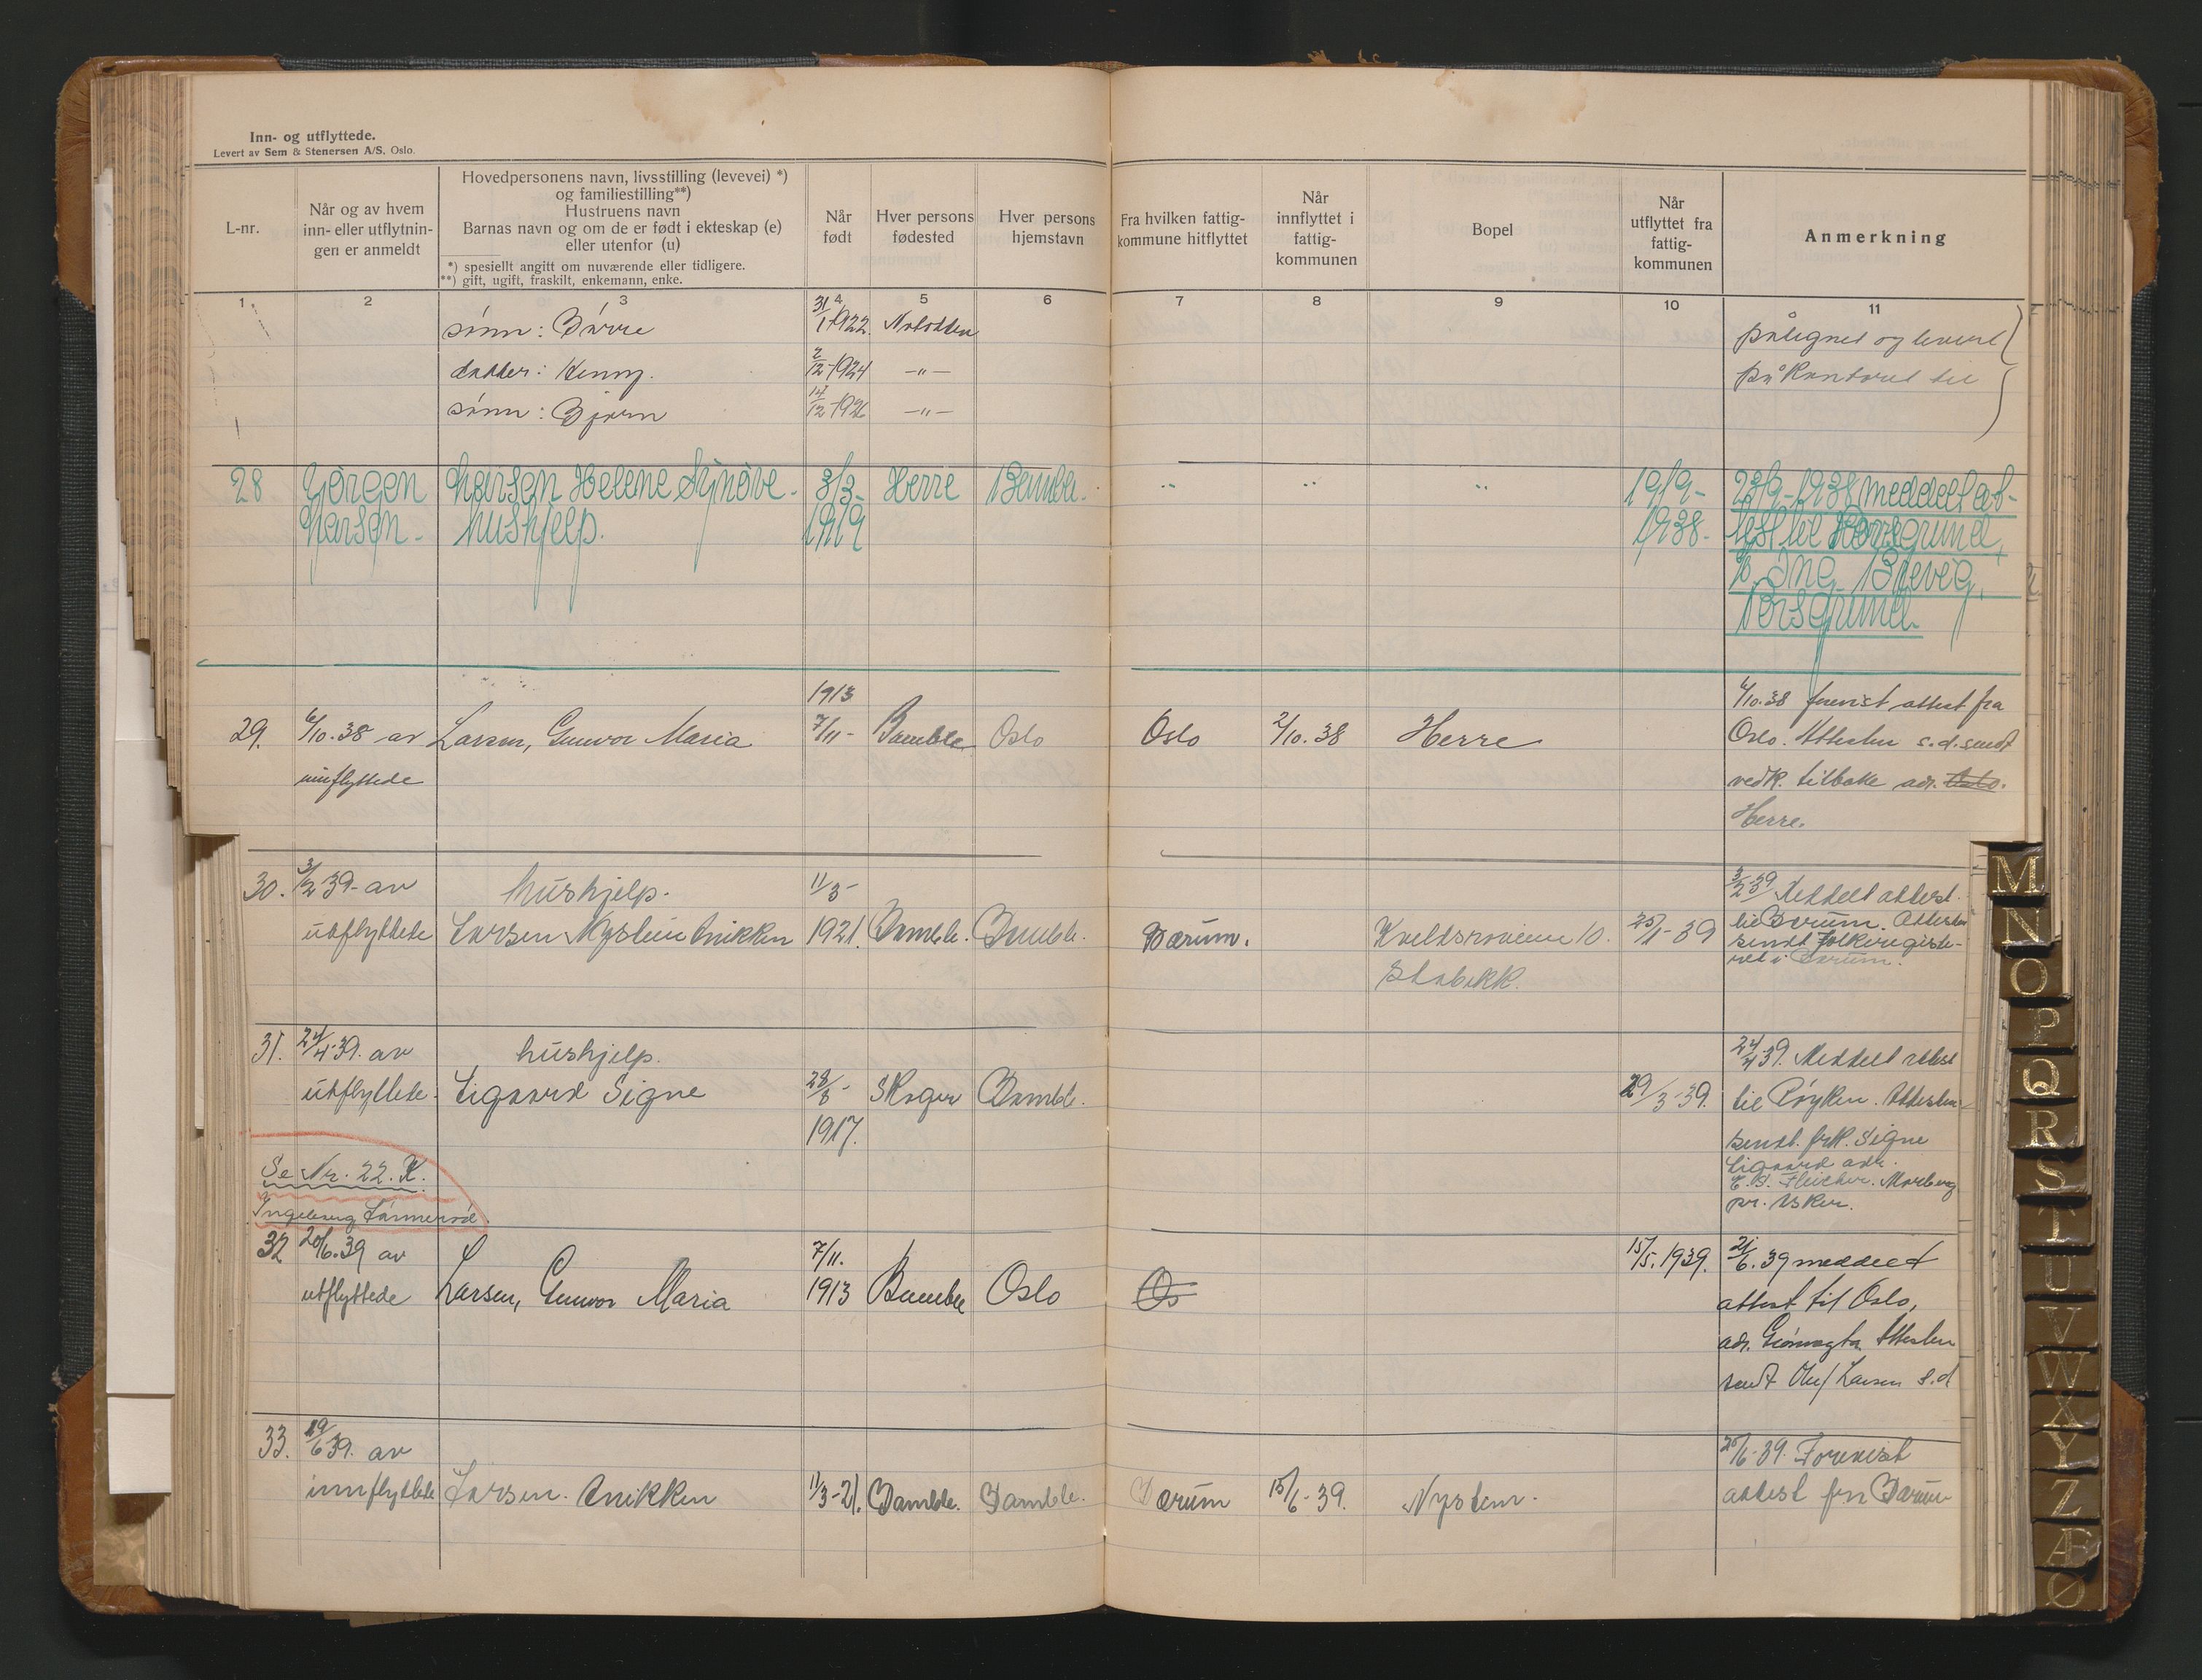 Inn- og utflyttede.
Levert av Sem & Stenersen A/S. Oslo.
L-nr.
Når og av hvem
inn- eller utflytnin-
gen er anmeldt
Hovedpersonens navn, livsstilling (levevei) *)
og familiestilling**)
Hustruens navn
Barnas navn og om de er født i ekteskap (e)
eller utenfor (u)
*) spesiellt angitt om nuværende eller tidligere.
**) gift, ugift, fraskilt, enkemann, enke.
Når
født
Hver persons
fødested
Hver persons
hjemstavn
Fra hvilken fattig-
kommune hitflyttet
Når
innflyttet i
fattig-
kommunen
Bopel
Når
utflyttet fra
fattig-
kommunen
Anmerkning
1 2 3 4 5 6 7 8 9 10 11
sønn: Børre 31/1-1922. Notodden
datter: Henny. 2/12-1924 —"—
sønn: Bjørn 14/12-1926 —"—
påtegnet og levert
på kontoret til
28 Jørgen Larsen Helene Synøve. 3/3- Herre Bamble. " " " 19/9- 23/9-1938 meddelt at-
Larsen- hushjelp. 1919 1938. test til Porsgrund,
Ing. Brevig,
Porsgrund.
1913
29. 6/10.38 av Larsen, Gunvor Maria 7/11- Bamble Oslo Oslo 2/10.38 Herre
innflyttede
6/10.38 forevist attest fra
Oslo. Attesten s.d. sendt
vedk. tilbake adr. Oslo.
Herre.
30. 3/2 39- av hushjelp. 11/3-
utflyttede Larsen Nystein Anikken 1921. Bamble. Bamble. Bærum. Kveldsroveien 10. 25/1-39
Stabekk.
3/2-39 Meddelt attest
til Bærum. Attesten
sendt Folkeregiste-
ret i Bærum.
31. 24/4-39. av hushjelp.
utflyttede. Ligaard Signe 28/8- Skoger Bamble. 29/3-39.
1917.
24/4 39. Meddelt attest
til Røyken. Attesten
sendt. frk. Signe
Ligaard adr.
Fleicher. Morberg
pr. Asker.
Se Nr. 22. K.
Ingeborg
32 20/6.39 av 7/11. 15/5.1939.
utflyttede Larsen, Gunvor Maria 1913 Bamble Oslo Os
21/6.39 meddelt
attest til Oslo,
adr. Attesten
sendt Oluf Larsen s.d
33. 19/6 39. av
innflyttede Larsen. Anikken 11/3-21. Bamble. Bamble. Bærum 15/6-39. Nystein.
20/6-39. Forevist
attest fra Bærum
M
N
O
P
Q
R
S
T
U
V
W
X
Y
Z
Æ
Ø